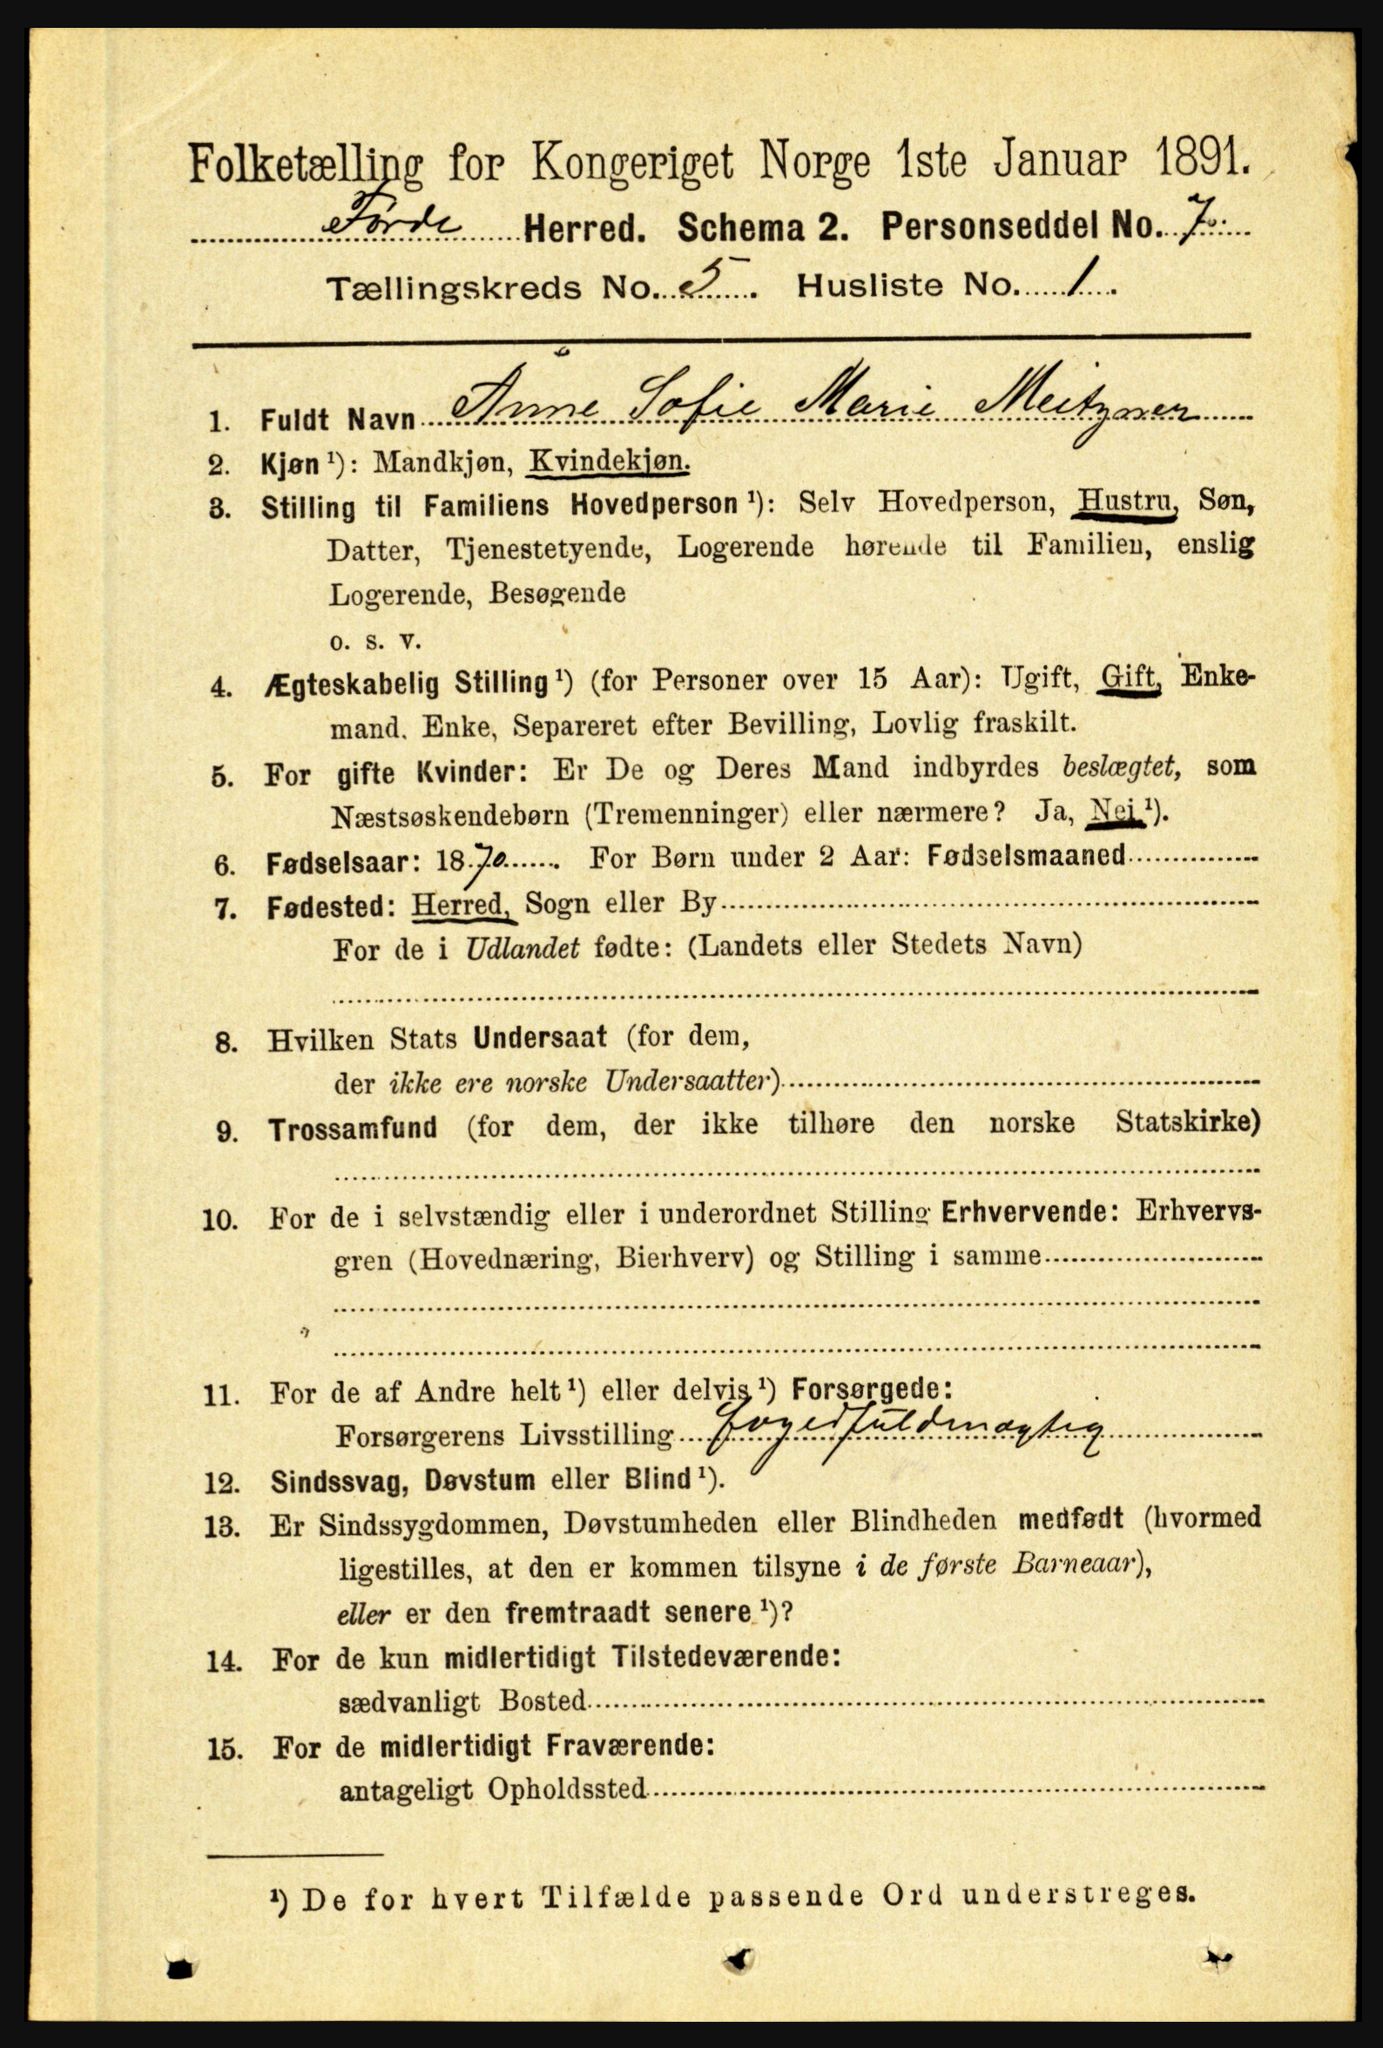 Folketælling for Kongeriget Norge 1ste Januar 1891.
Førde Herred. Schema 2. Personseddel No. 7.
Tællingskreds No. 5. Husliste No. 1.
1. Fuldt Navn Anne Sofie Marie Meitzner
2. Kjøn ¹): Mandkjøn, Kvindekjøn.
3. Stilling til Familiens Hovedperson ¹): Selv Hovedperson, Hustru, Søn,
Datter, Tjenestetyende, Logerende hørende til Familien, enslig
Logerende, Besøgende
o. s. v.
4. Ægteskabelig Stilling ¹) (for Personer over 15 Aar): Ugift, Gift, Enke-
mand, Enke, Separeret efter Bevilling, Lovlig fraskilt.
5. For gifte Kvinder: Er De og Deres Mand indbyrdes beslægtet, som
Næstsøskendebørn (Tremenninger) eller nærmere? Ja, Nei ¹).
6. Fødselsaar: 1870. For Børn under 2 Aar: Fødselsmaaned
7. Fødested: Herred, Sogn eller By
For de i Udlandet fødte: (Landets eller Stedets Navn)
8. Hvilken Stats Undersaat (for dem,
der ikke ere norske Undersaatter)
9. Trossamfund (for dem, der ikke tilhøre den norske Statskirke)
10. For de i selvstændig eller i underordnet Stilling Erhvervende: Erhvervs-
gren (Hovednæring, Bierhverv) og Stilling i samme
11. For de af Andre helt ¹) eller delvis ¹) Forsørgede:
Forsørgerens Livsstilling fogedfuldmægtig
12. Sindssvag, Døvstum eller Blind ¹).
13. Er Sindssygdommen, Døvstumheden eller Blindheden medfødt (hvormed
ligestilles, at den er kommen tilsyne i de første Barneaar),
eller er den fremtraadt senere ¹)?
14. For de kun midlertidigt Tilstedeværende:
sædvanligt Bosted
15. For de midlertidigt Fraværende:
antageligt Opholdssted
¹) De for hvert Tilfælde passende Ord understreges.